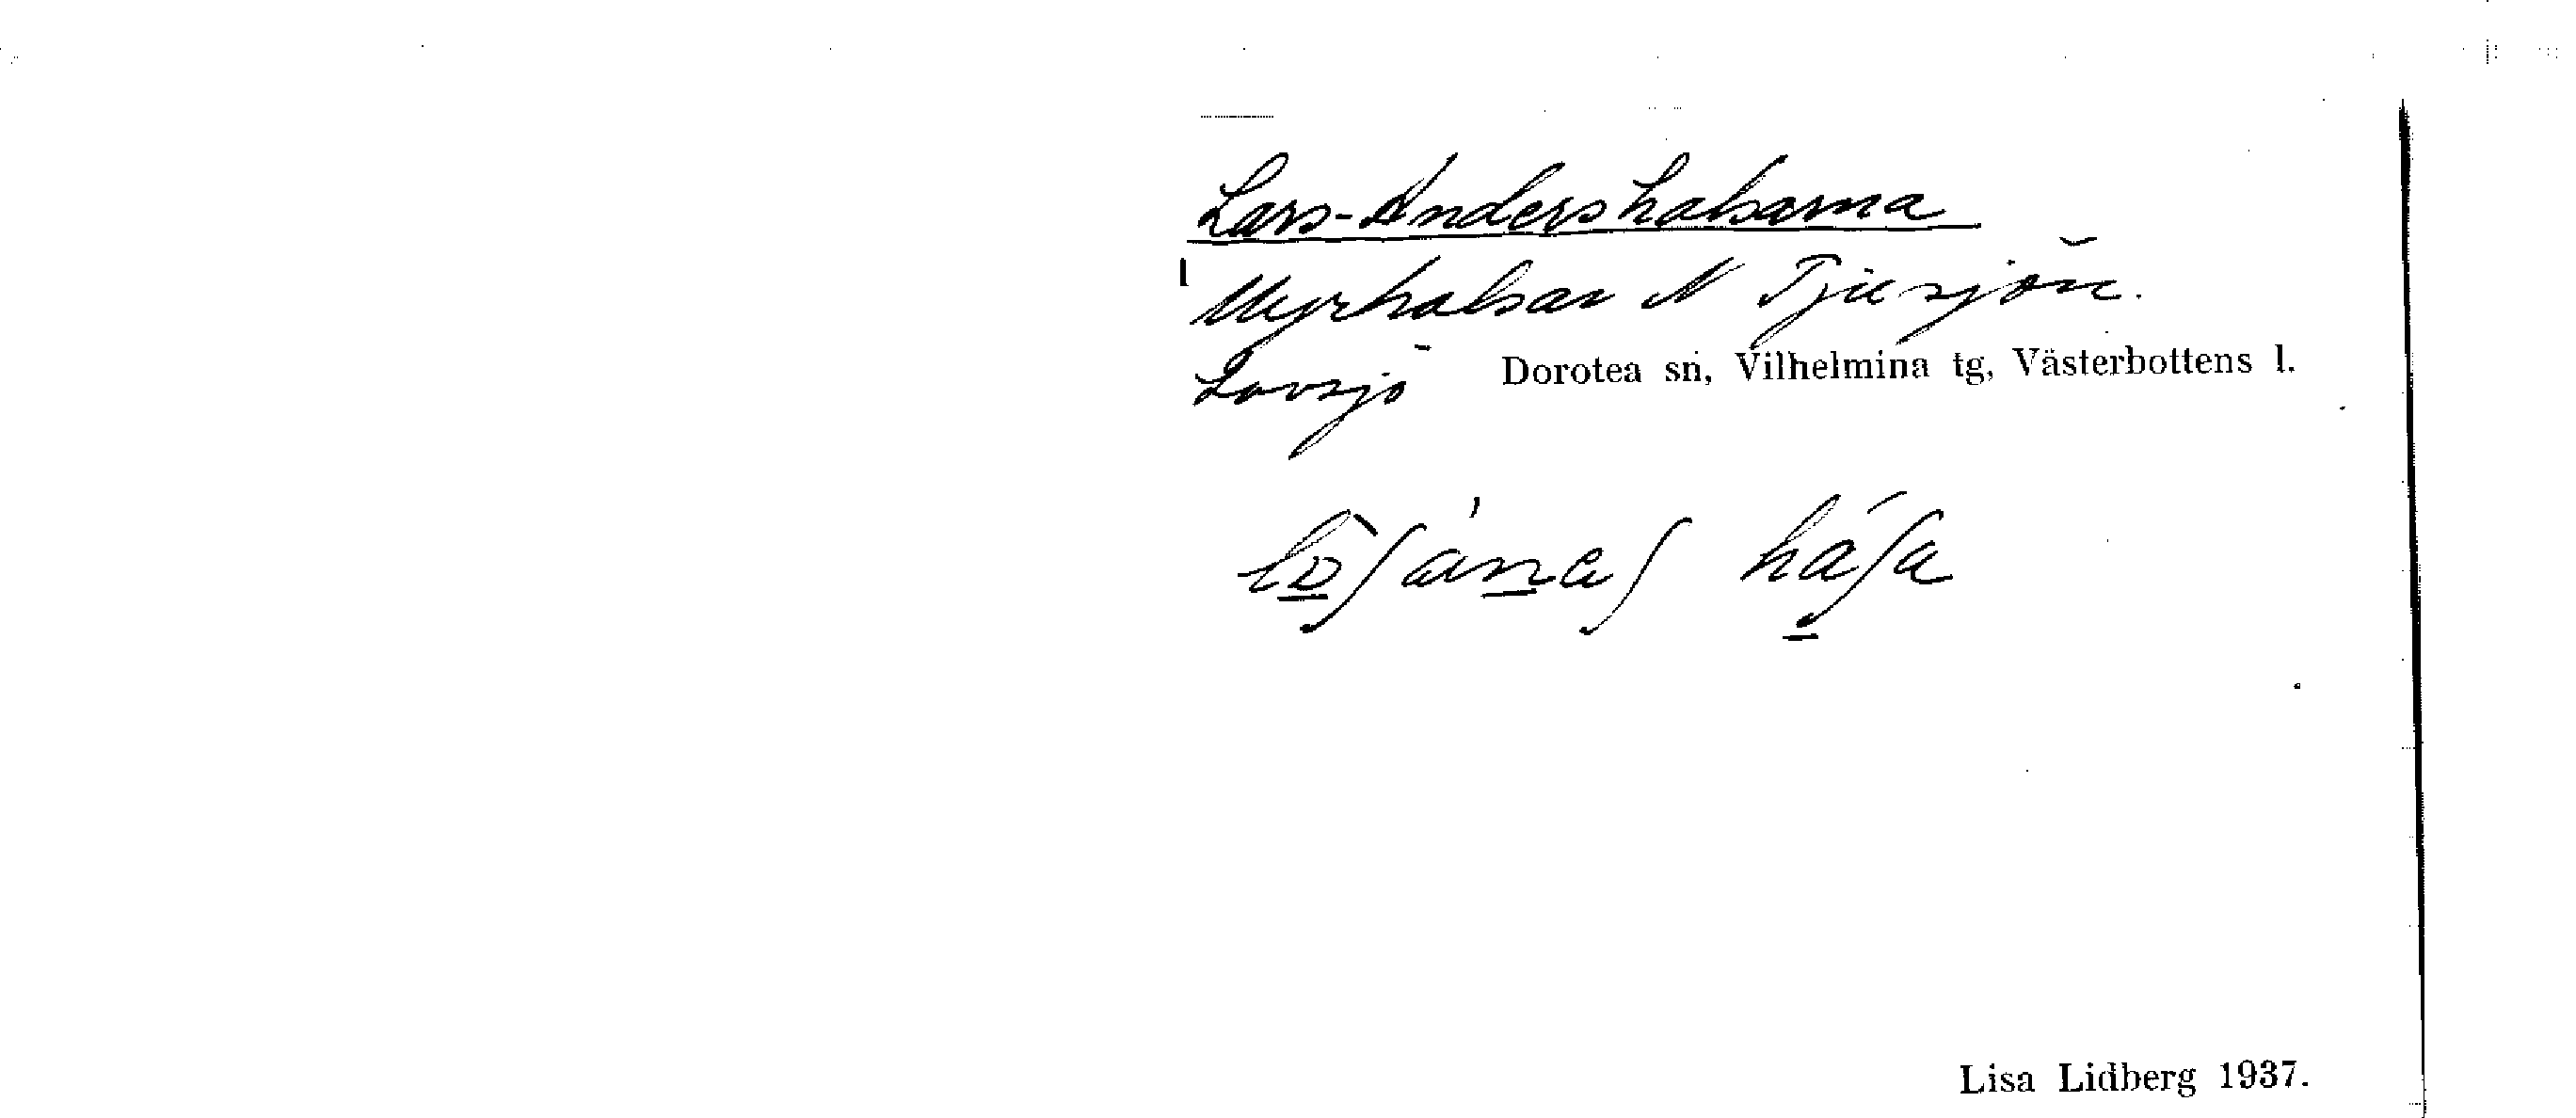 Lars-Andershalsarna
Myrhalsar N Tjusjön.
Lavsjö Dorotea sn, Vilhelmina tg, Västerbottens l.
Lisa Lidberg 1937.